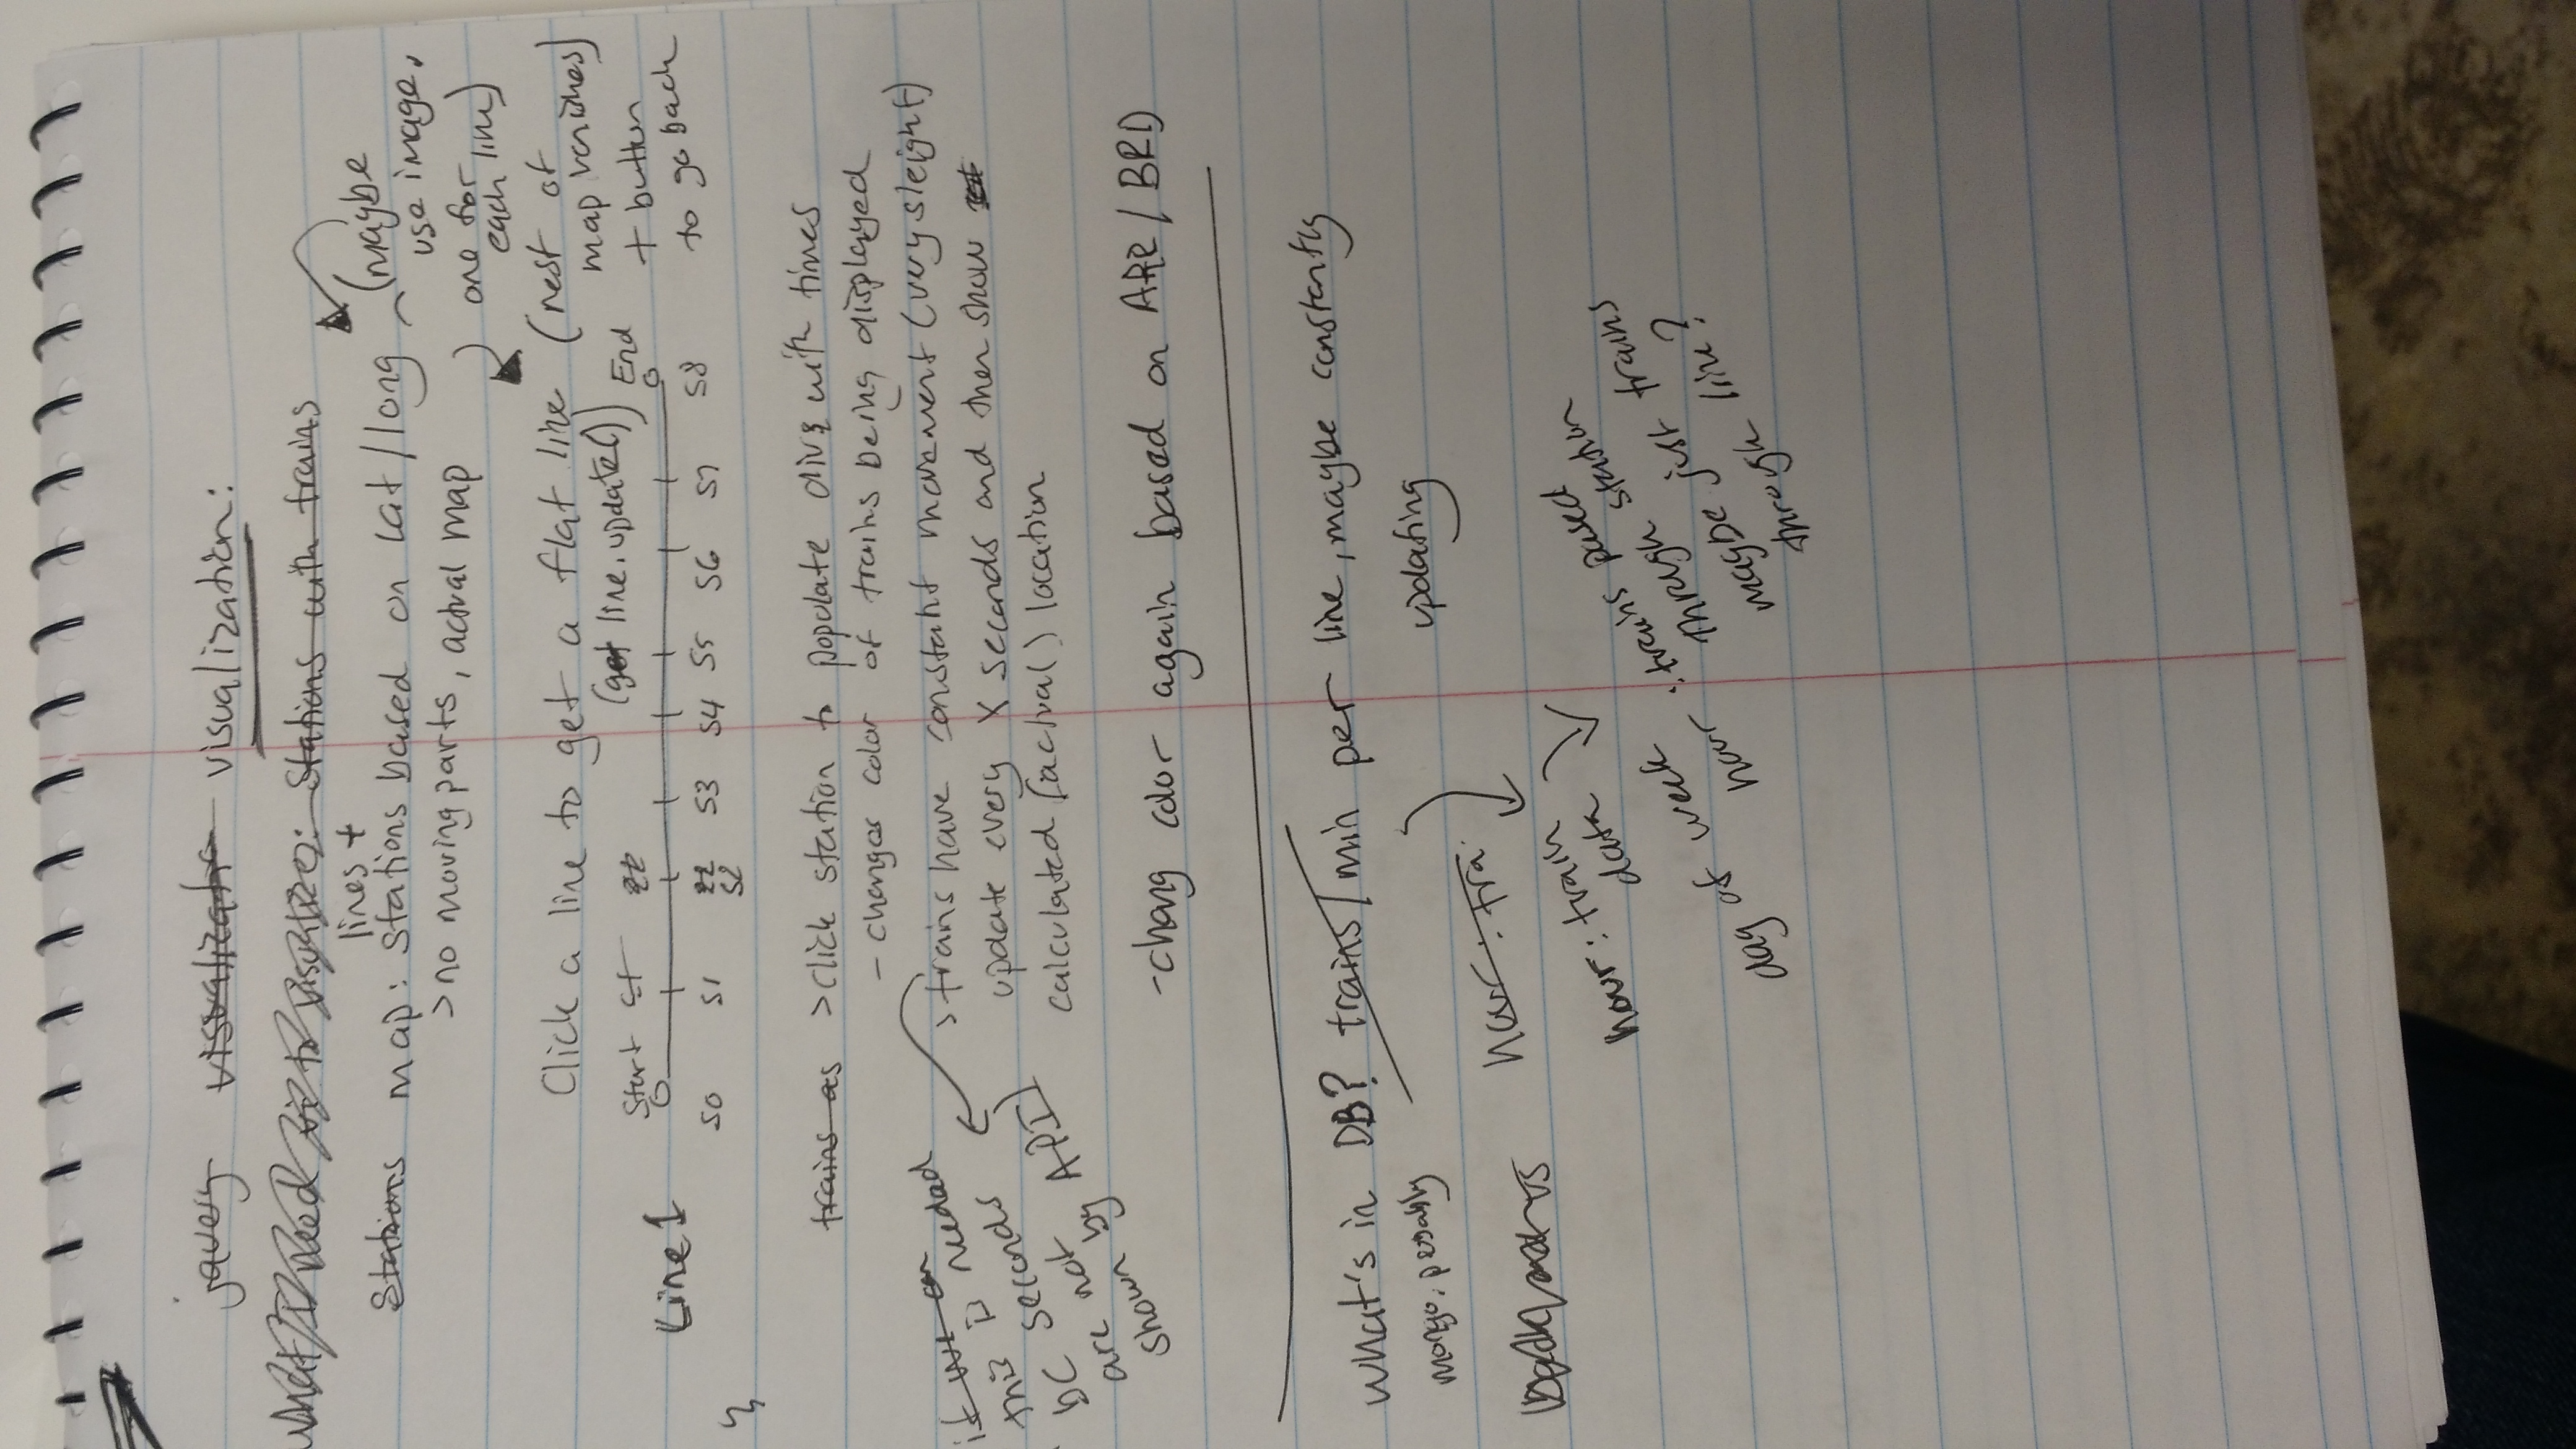 jquery visualizatio visualization:
What I need vi to visualize: Stations with trains
lines +
Stations map: stations based on lat/long (maybe
use image,
>no moving parts, actual map
one for
each line)
Click a line to get a flat line (rest of
map vanishes)
(get line.update())
+ button
to go back
Start st End
Line 1
S0 S1 S2 S3 S4 S5 S6 S7 S8
trains as >click station to populate divs with times
- changes color of trains being displayed
>trains have constant movement (very sleight)
update every X seconds and then show
calculated (actual) location
if we can
this is needed
bc seconds
are not
shown by API)
-chang color again based on ARR/BRD
What's in DB? trains/min per line, maybe constantly
updating
mongo, possibly
hour: tra
hour: train
data
day of week
hour: trains passed
through station
maybe just trains
through line?